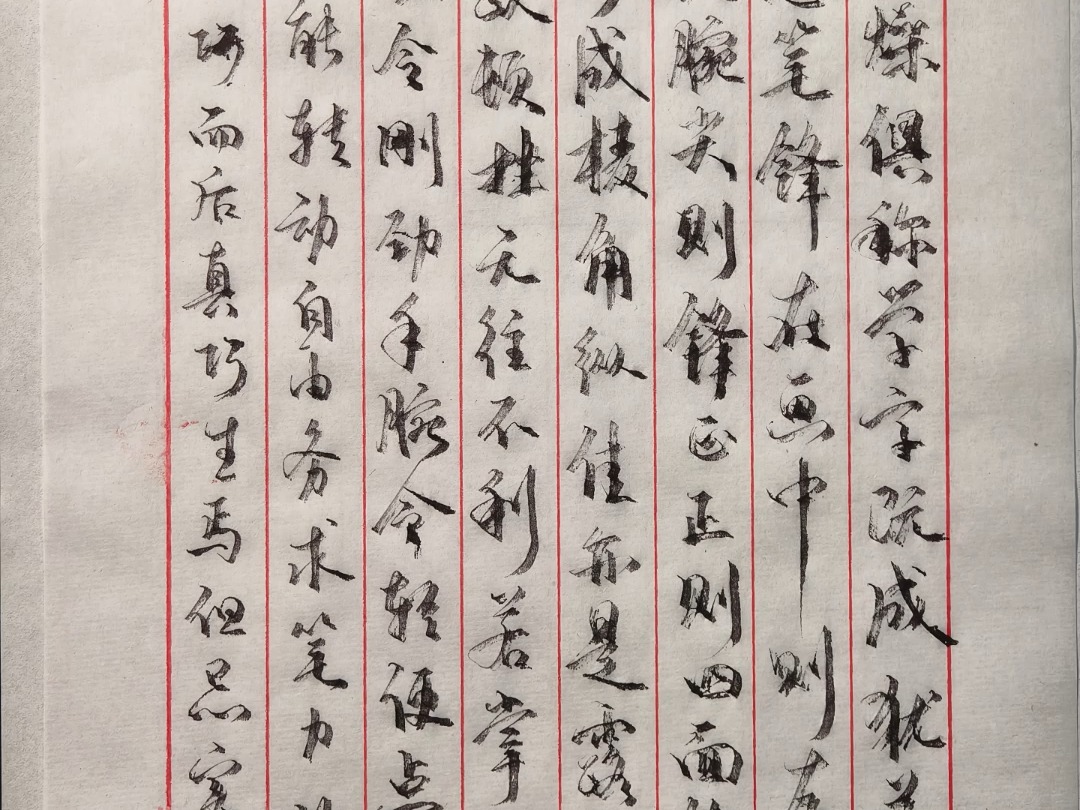 燥俱称学字既成犹
笔锋在画中则左
腕尖则锋正正则四面
成棱角纵佳亦是露
顿挫无往不利若掌
令刚劲手腕令轻便点
能转动自由务求笔力
巧而后真巧生焉但忌实